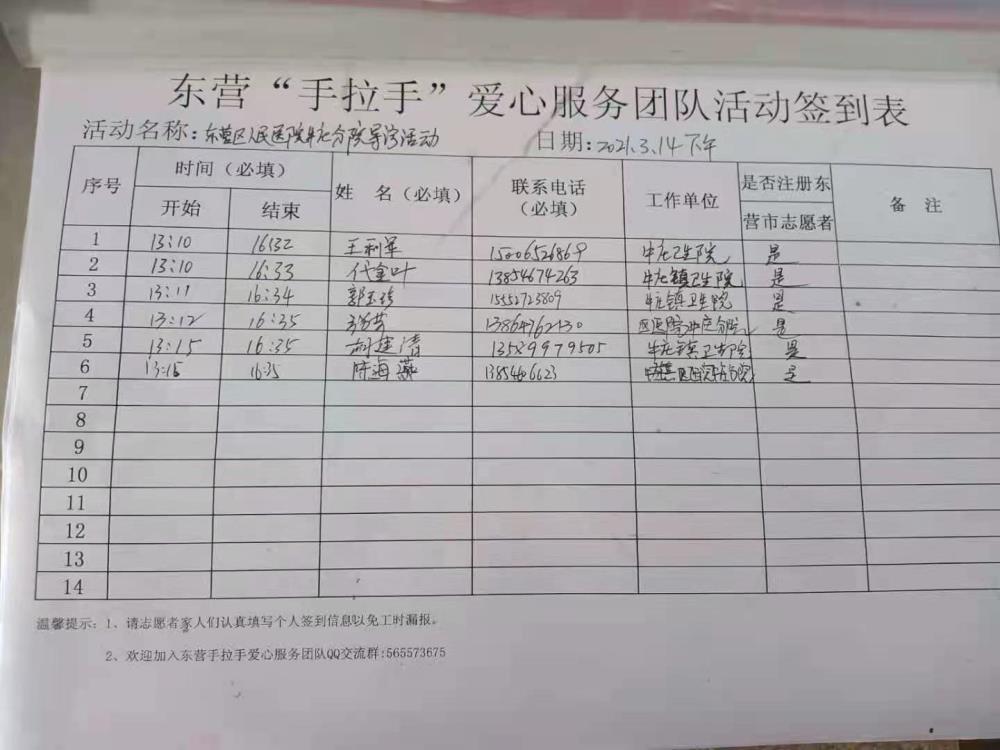 东营“手拉手”爱心服务团队活动签到表
活动名称：东营区人民医院牛庄分院导诊活动 日期：2021.3.14下午
序号 时间（必填） 姓 名（必填） 联系电话（必填） 工作单位 是否注册东营市志愿者 备 注
开始 结束
1 13:10 16:32 王利军 15006526869 牛庄卫生院 是
2 13:10 16:33 代金叶 13854674263 牛庄镇卫生院 是
3 13:11 16:34 郭玉珍 15552723809 牛庄镇卫生院 是
4 13:12 16:35 13864762130 区医院牛庄分院 是
5 13:15 16:35 清 13589979505 牛庄镇卫生院 是
6 13:15 16:35 海燕 是
7
8
9
10
11
12
13
14
温馨提示：1、请志愿者家人们认真填写个人签到信息以免工时漏报。
2、欢迎加入东营手拉手爱心服务团队QQ交流群:565573675